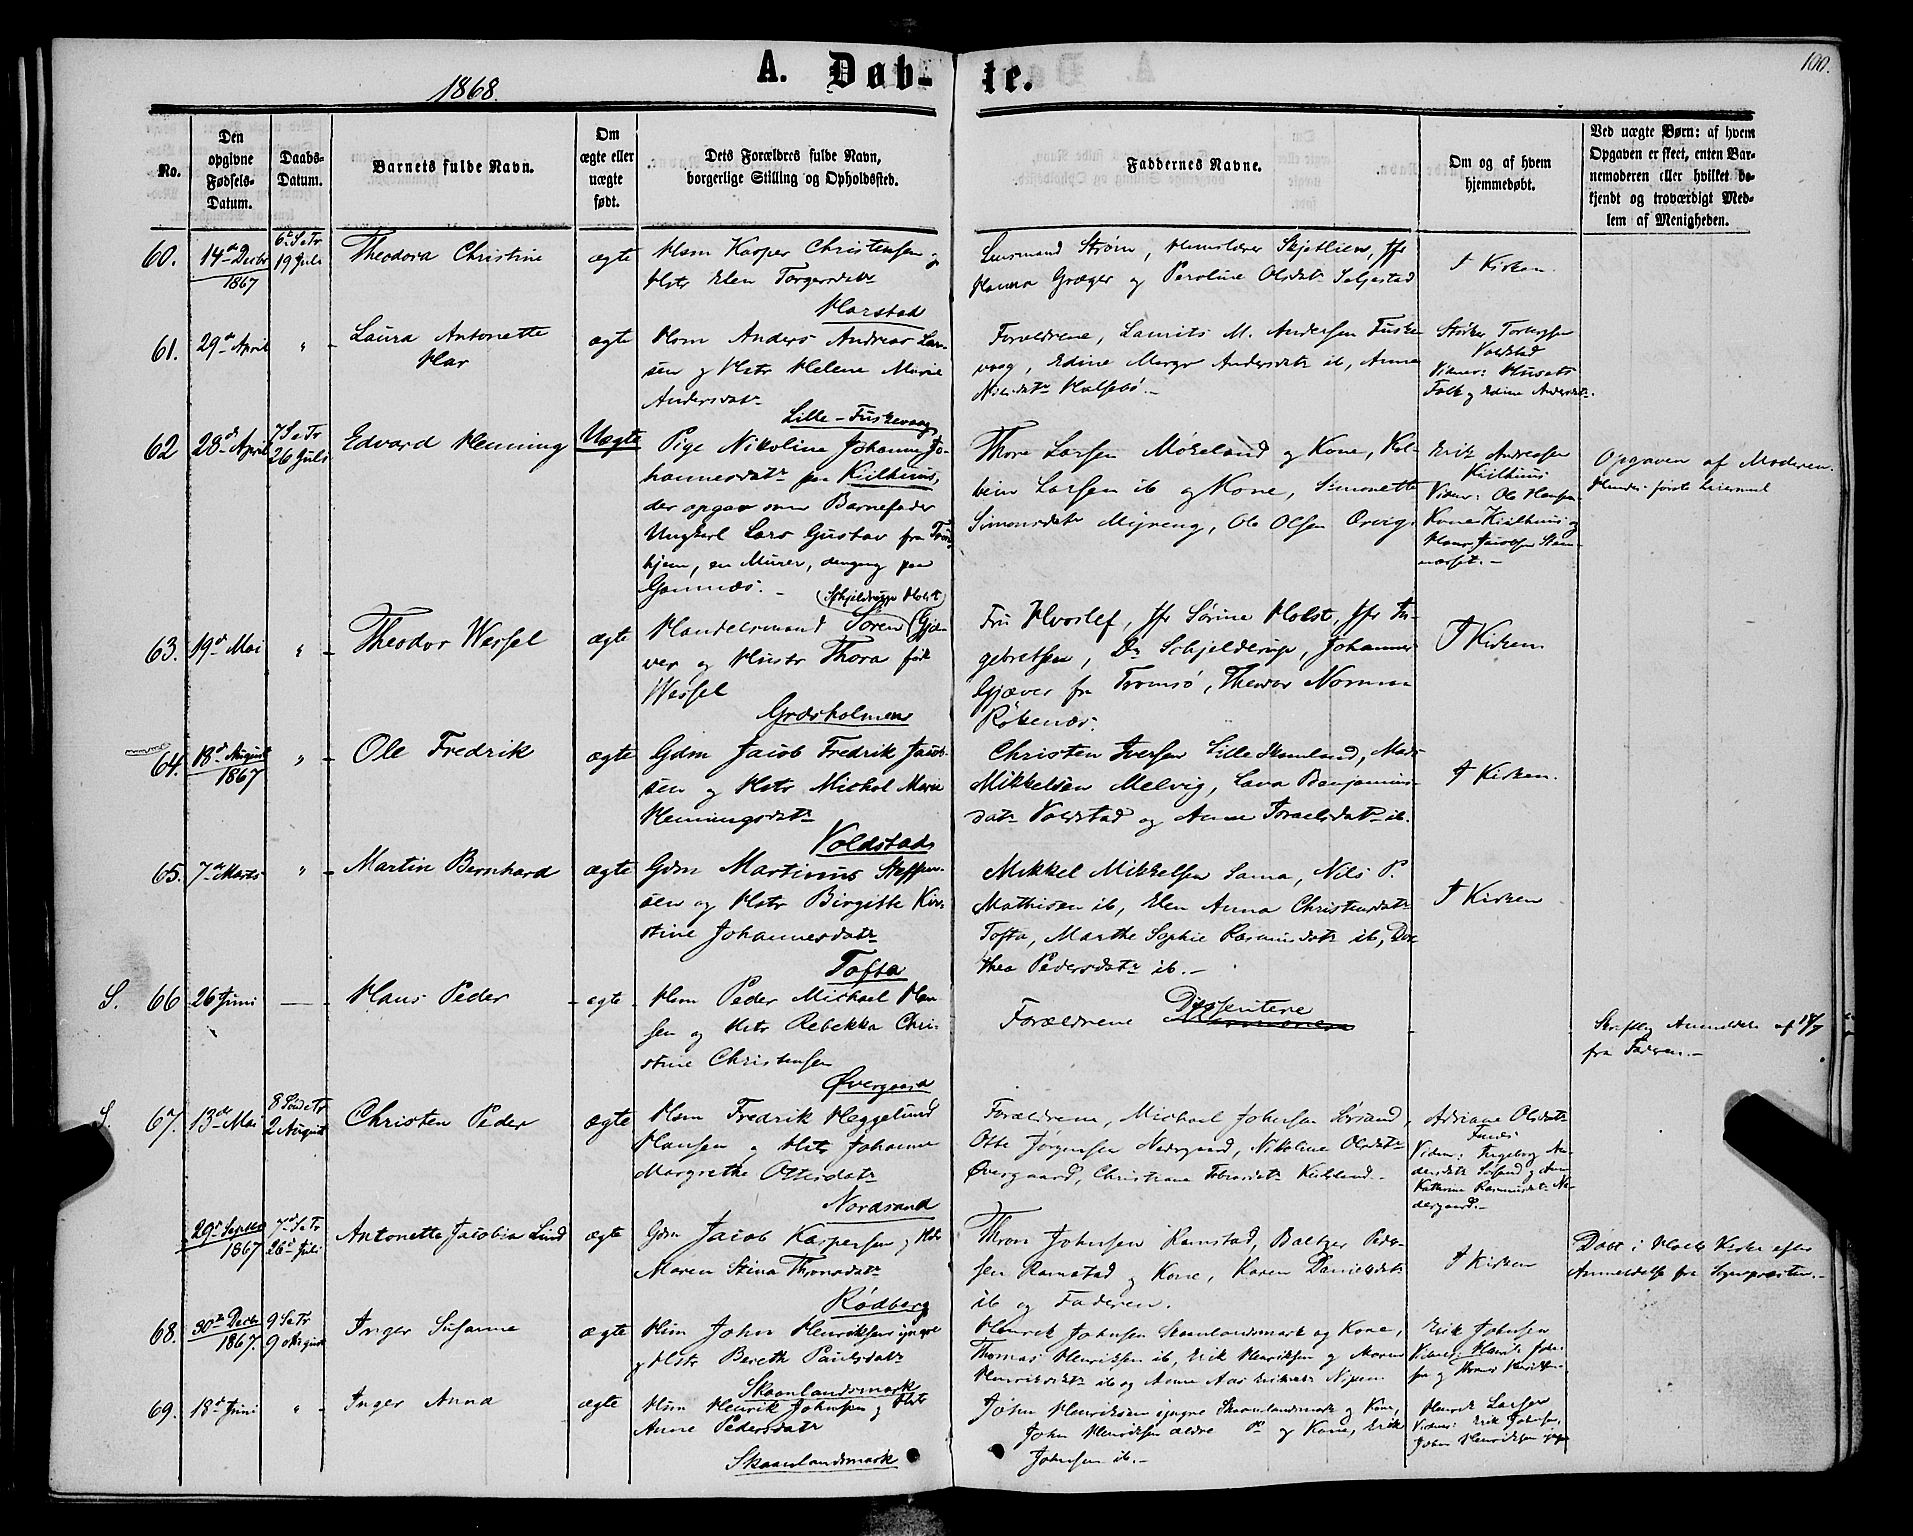 1868.
A. Døb-
te.
100.
No.
Den opgivne Fødsels-Datum.
Daabs-Datum.
Barnets fulde Navn.
Om ægte eller uægte født.
Dets Forældres fulde Navn, borgerlige Stilling og Opholdssted.
Faddernes Navne.
Om og af hvem hjemmedøbt.
Ved uægte Børn: af hvem Opgaven er skeet, enten Barnemoderen eller hvilket bekjendt og troværdigt Medlem af Menigheden.
60.
14de Decbr
1867
6te S e Tr
19 Juli
Theodora Christine
ægte
Hsm Kasper Christensen og
Hstr Elen Torgersdatr
Harstad
Lensmand Strøm, Skjetlien, Jfr
Hanna Græger og Peroline Olsdatr Seljestad
I Kirken.
61.
29de April
"
Laura Antonette
Har
ægte
Hsm Anders Andreas Lar-
sen og Hstr Helene Marie
Andersdatr
Lille-Fuskevaag
Forældrene, Laurits M. Andersen Fuske
vaag, Edine Margr Andersdatr ib, Anne
Nilsdatr Halsebø.-
Voldstad
Vidner: Husets
Folk og Edine Andersdatr.
62
28de April
7 S e Tr
26 Juli
Edvard Henning
Uægte
Pige Nikoline Johanne Jo-
hannesdatr paa Kiilhuus,
der opgav som Barnefader
Ungkarl Lars Gustav fra Tron-
hjem, en Murer, dengang paa
Gonnæs.-
Thore Larsen Møkeland og Kone, Kol-
bein Larsen ib og Kone, Simonette
Simonsdatr Myreng, Ole Olsen Ervig.
Erik Andreassen
Kiilhuus
Vidner: Ole Hansen
Kone Kiilhuus og
Hans Jacobsen
Opgaven af Moderen.
Hendes første Leiermaal
63.
19de Mai
"
Theodor Wessel
ægte
(Schjelderupp Holst)
Handelsmand Søren Gjæ-
ver og Hustr Thora født
Wessel
Græsholmen
Fru Hvoslef, Jfr Sørine Holst, Jfr In-
gebretsen, Dr Schjelderup, Johannes
Gjæver fra Tromsø, Theodor Norman
Røkenæs.
I Kirken
64.
18de August
1867
"
Ole Fredrik
ægte
Gdm Jacob Fredrik Jacob-
sen og Hstr Michol Marie
Henningsdatr
Voldstad
Christen Iversen Lille Skanland, Mads
Mikkelsen Melvig, Lava Benjamins-
datr Voldstad og Anne Israelsdatr ib.
I Kirken.
65.
7de Marts
"
Martin Bernhard
ægte
Gdm Martinus Steffen-
sen og Hstr Birgitte Kir-
stine Johannesdatr
Tofta
Mikkel Mikkelsen Sama, Nils P.
Mathisen ib, Elen Anna Christensdatr
Tofta, Marthe Sophie Rasmusdatr ib, Do-
thea Pedersdatr ib.-
I Kirken
S.
66
26 Juni
Hans Peder
ægte
Hsm Peder Michael Han-
sen og Hstr Rebekka Chri-
stine Christensen
Øvergaard
Forældrene Dissentere
Skriftlig Anmeldelse af 18/7
fra Faderen.-
S.
67.
13de Mai
8 Sønd e Tr
2 August
Christen Peder
ægte
Hsm Fredrik Heggelund
Hansen og Hstr Johanna
Margrethe Ottesdatr
Nordsand
Forældrene, Michael Johnsen Sørsand,
Otte Jørgensen Nedrgaard, Nikoline Olsdatr
Øvergaard, Christiane Tobiasdatr
Adriane Olsdatr
Vidner: Ingeborg An-
dersdatr Sørsand og Ane
Kathrine Rasmusdatr Ne-
dergaard.-
29de Septbr
1867
7de S e Tr
26de Juli
Antonette Jacobia Lind
ægte
Gdm Jacob Kaspersen og Hstr
Maren Stina Thronsdatr
Rødberg
Thron Johnsen Ramstad, Baltzer Peder-
sen Ramstad og Kone, Karen Danielsdatr
ib og Faderen.
I Kirken
Døbt i Hols Kirke efter
Anmeldelse fra Sognepræsten.-
68.
30te Decbr
1867.
9 S e Tr
9 August
Inger Susanne
ægte
Hsm John Henriksen yngre
og Hstr Bereth Paulsdatr
Skaanlandsmark
Henrik Johnsen Skaanlandsmark og Kone,
Thomas Henriksen ib, Erik Henriksen og Maren
Henriksdatr ib og Anne Aas Eriksdatr Nipen.
Erik Johnsen
Vidner: Henrik John-
sen og Thomas Henriksen
69.
18de Juni
"
Inger Anna
ægte
Hsm Henrik Johnsen og Hstr
Anne Pedersdatr
Skaanlandsmark
John Henriksen yngre Skaanlandsmark og Kone,
John Henriksen ældre og Kone, Erik
Johnsen ib.-
Henrik Larsen
Vidner: Erik Johnsen,
John Henriksen yngre